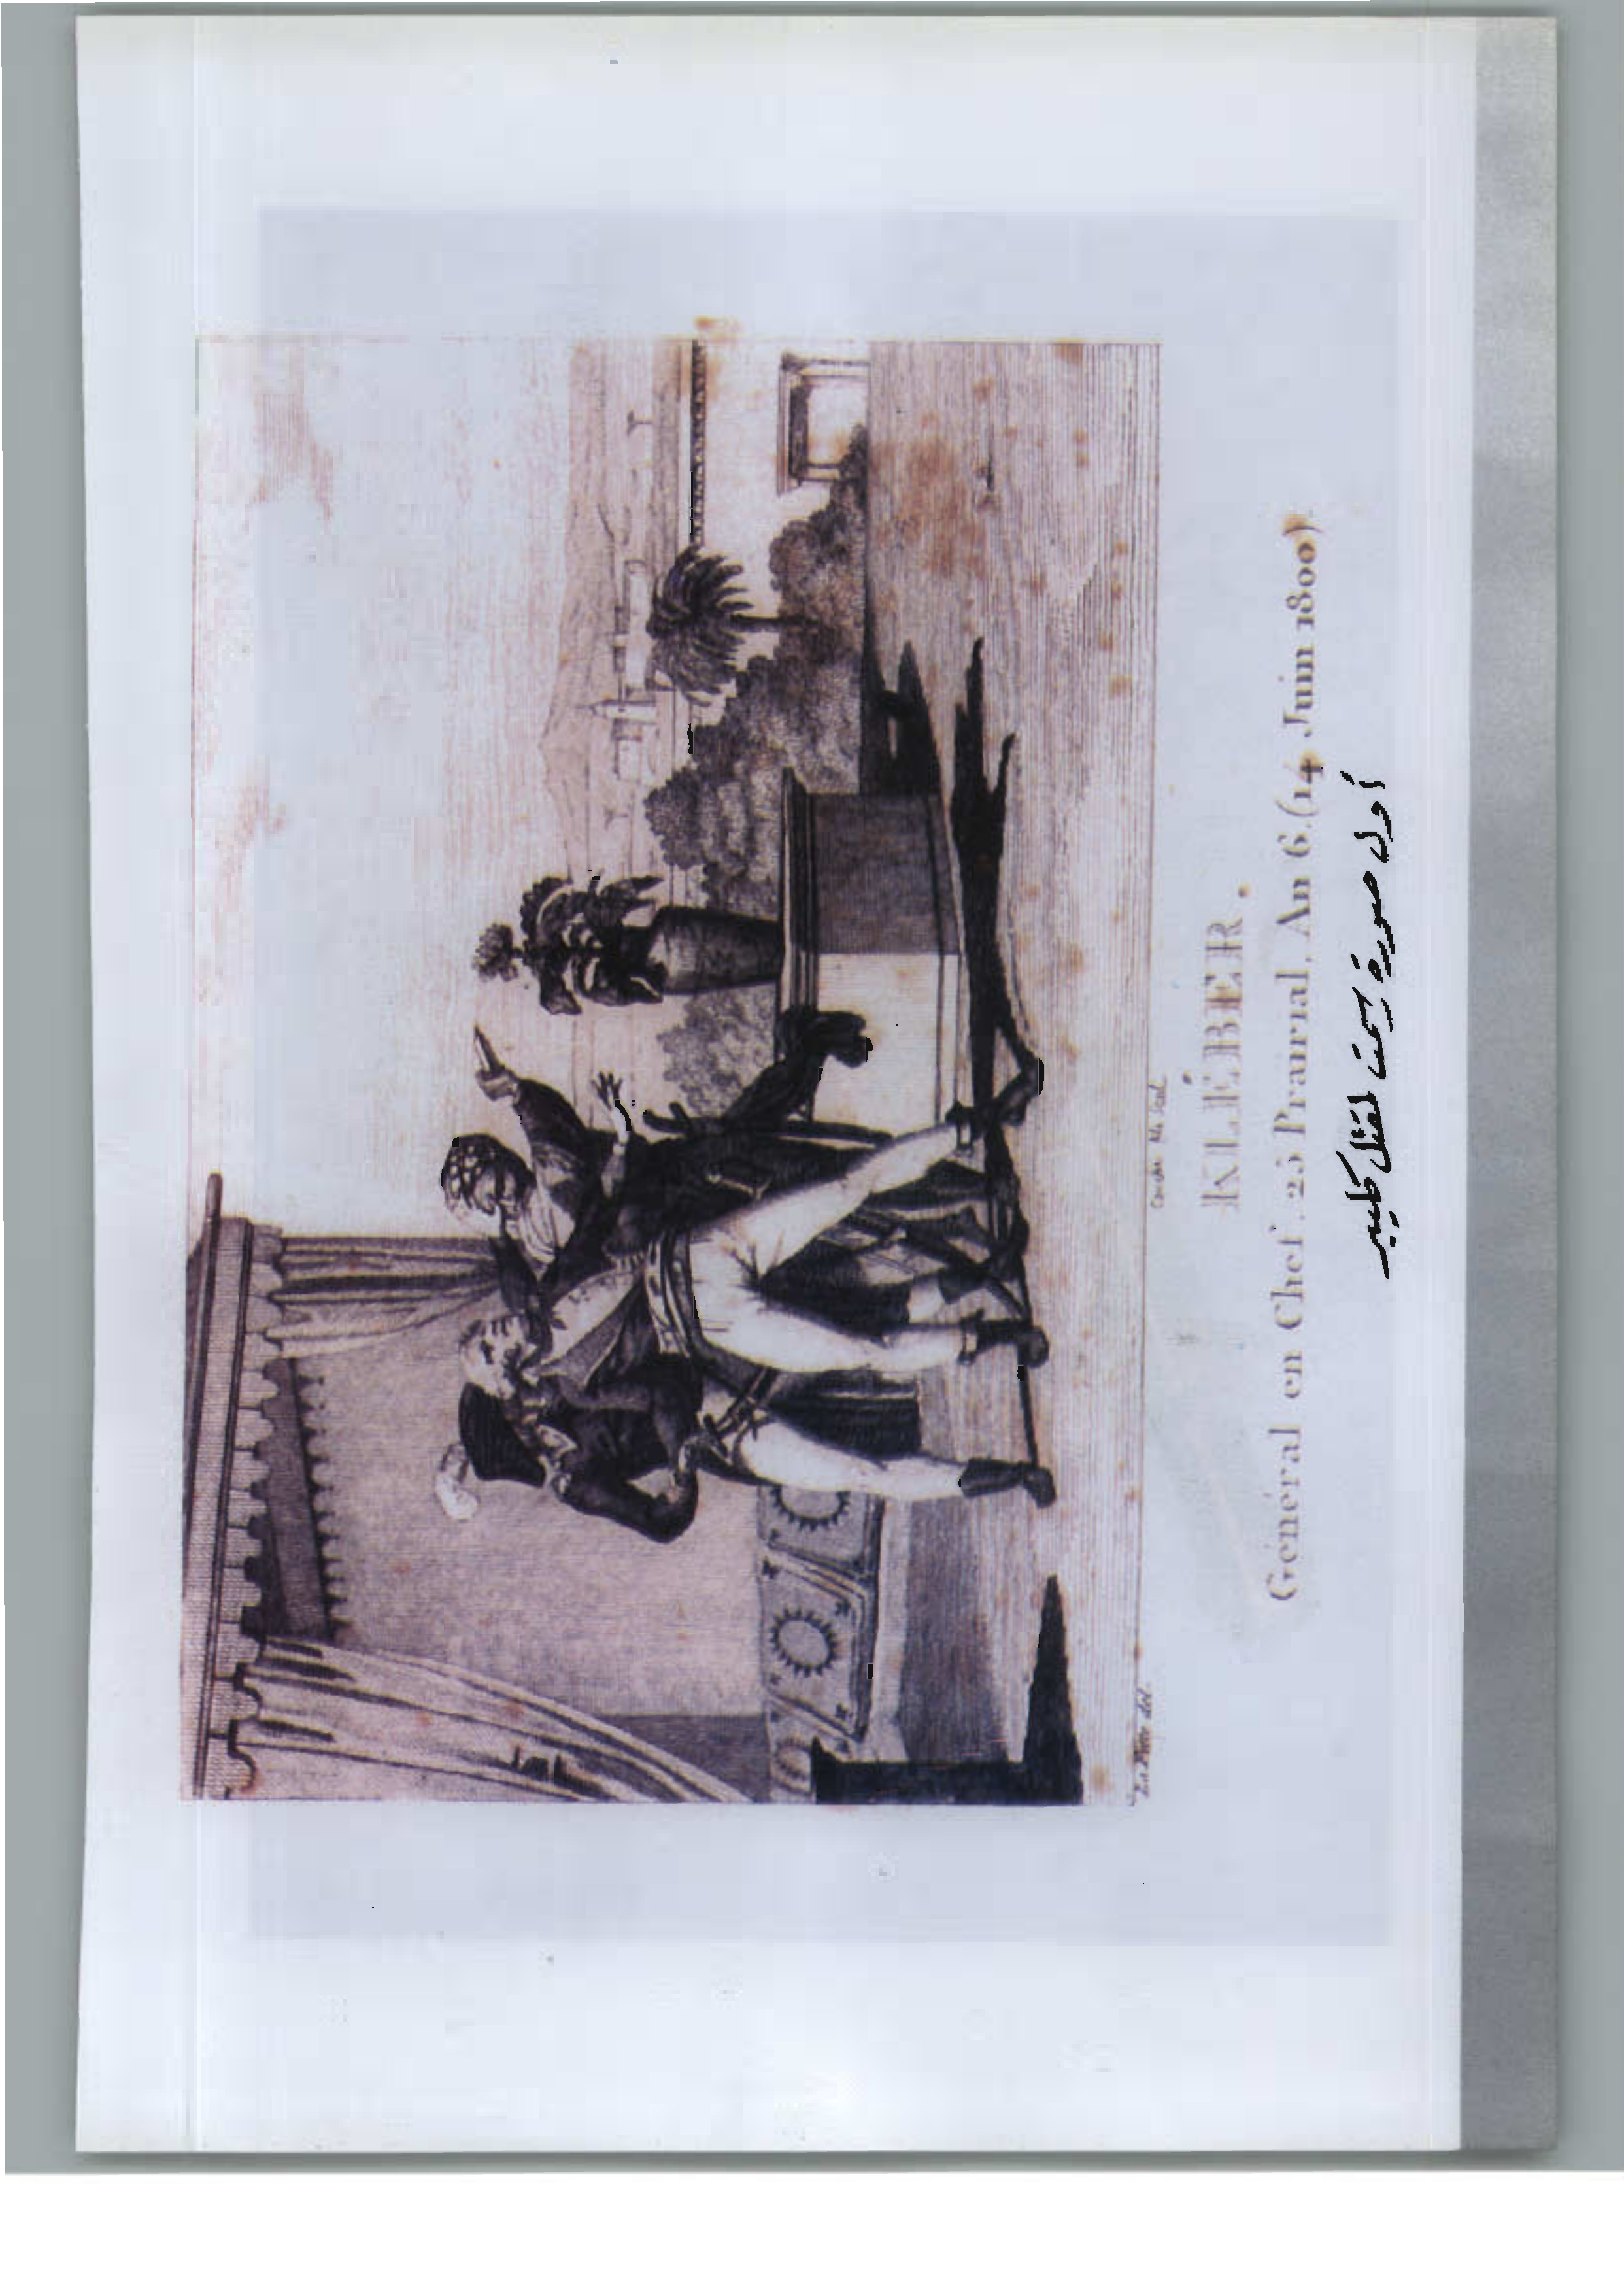 Couché fils Scul.
KLÉBER.
Général en Chef. 25 Prairial, An 6. (14 Juin 1800)
أول صورة رسمت لمقتل كليبر